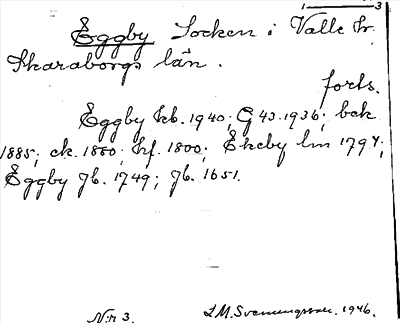 1 3
Eggby Socken i Valle Hr.
Skaraborgs län.
forts.
Eggby kb. 1940; G 43.1936; bek
1885; ck. 1860; kf. 1800; Ekeby lm 1794;
Eggby jb. 1749; jb. 1651.
N:r 3. L.M. Svenungsson. 1946.